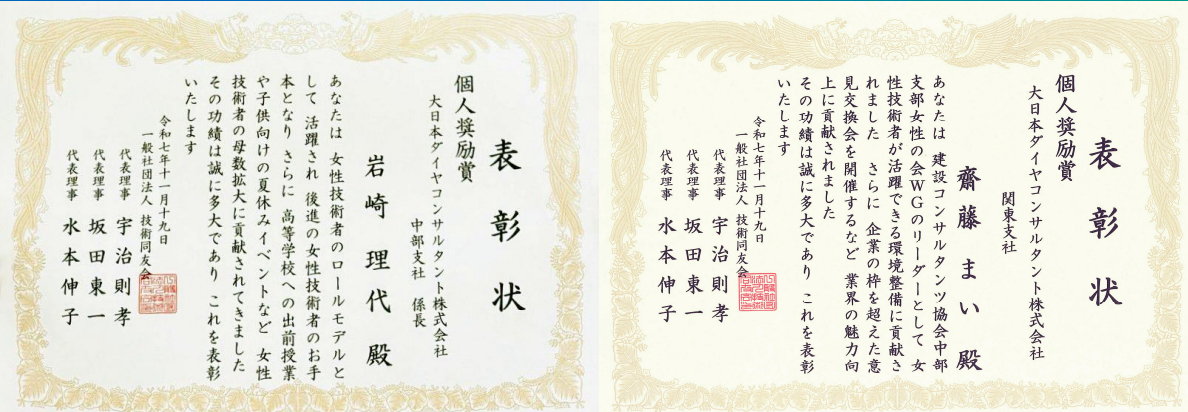 表彰状
個人奨励賞
大日本ダイヤコンサルタント株式会社
中部支社 係長
岩崎 理代 殿
あなたは 女性技術者のロールモデルと
して 活躍され 後進の女性技術者のお手
本となり さらに 高等学校への出前授業
や子供向けの夏休みイベントなど 女性
技術者の母数拡大に貢献されてきました
その功績は誠に多大であり これを表彰
いたします
令和七年十一月十九日
一般社団法人 技術同友会
代表理事 宇治則孝
代表理事 坂田東一
代表理事 水本伸子
表彰状
個人奨励賞
大日本ダイヤコンサルタント株式会社
関東支社
齋藤 まい 殿
あなたは 建設コンサルタンツ協会中部
支部女性の会WGのリーダーとして 女
性技術者が活躍できる環境整備に貢献さ
れました さらに 企業の枠を超えた意
見交換会を開催するなど 業界の魅力向
上に貢献されました
その功績は誠に多大であり これを表彰
いたします
令和七年十一月十九日
一般社団法人 技術同友会
代表理事 宇治則孝
代表理事 坂田東一
代表理事 水本伸子